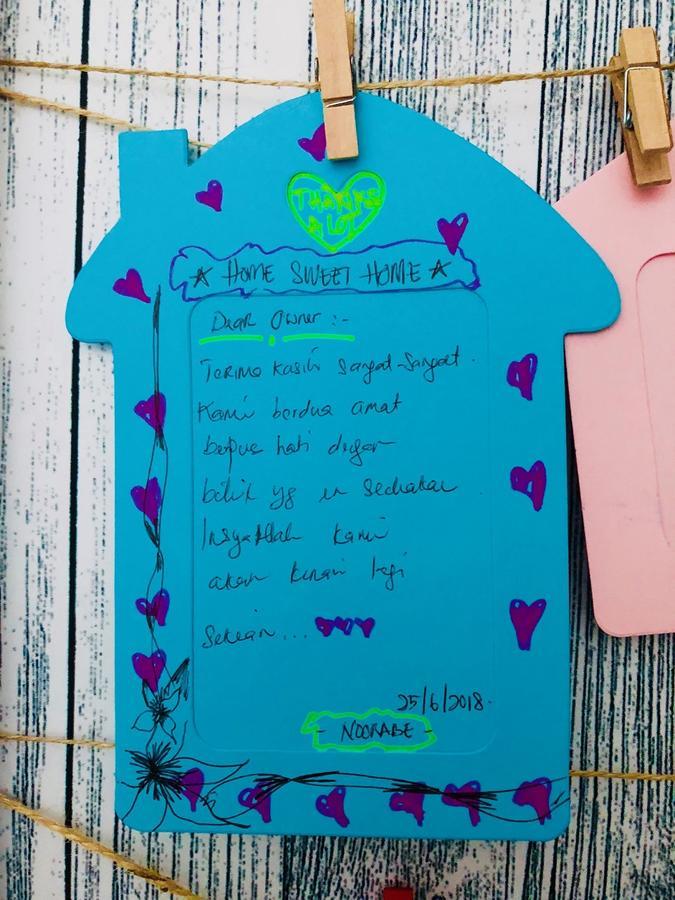 THANKS
A LOT
★ HOME SWEET HOME ★
Dear Owner :-
Terima kasih sangat-sangat.
Kami berdua amat
berpuas hati dengan
bilik yg un sediakan.
InsyaAllah kami
akan kunari lagi
Sekian...
25/6/2018.
- NOORABE -